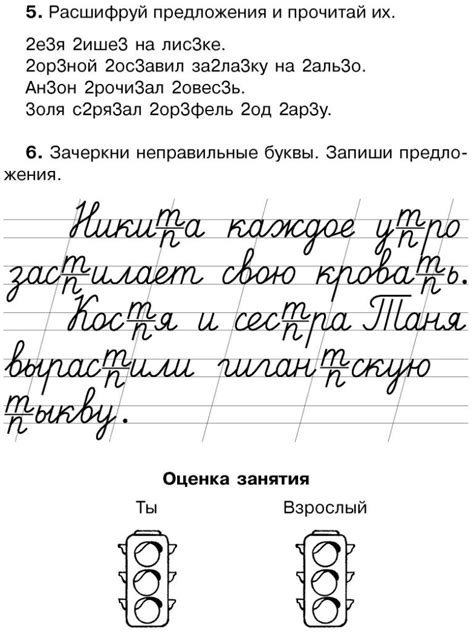 5. Расшифруй предложения и прочитай их.
2е3я 2ише3 на лис3ке.
2ор3ной 2ос3авил за2ла3ку на 2аль3о.
Ан3он 2рочи3ал 2овес3ь.
3оля с2ря3ал 2ор3фель 2од 2ар3у.
6. Зачеркни неправильные буквы. Запиши предло-
жения.
Ники т/п а каждое у т/п ро
зас т/п илает свою крова т/п ь.
Кос т/п я и сес т/п ра Таня
вырас т/п или гиган т/п скую
т/п ыкву.
Оценка занятия
Ты Взрослый